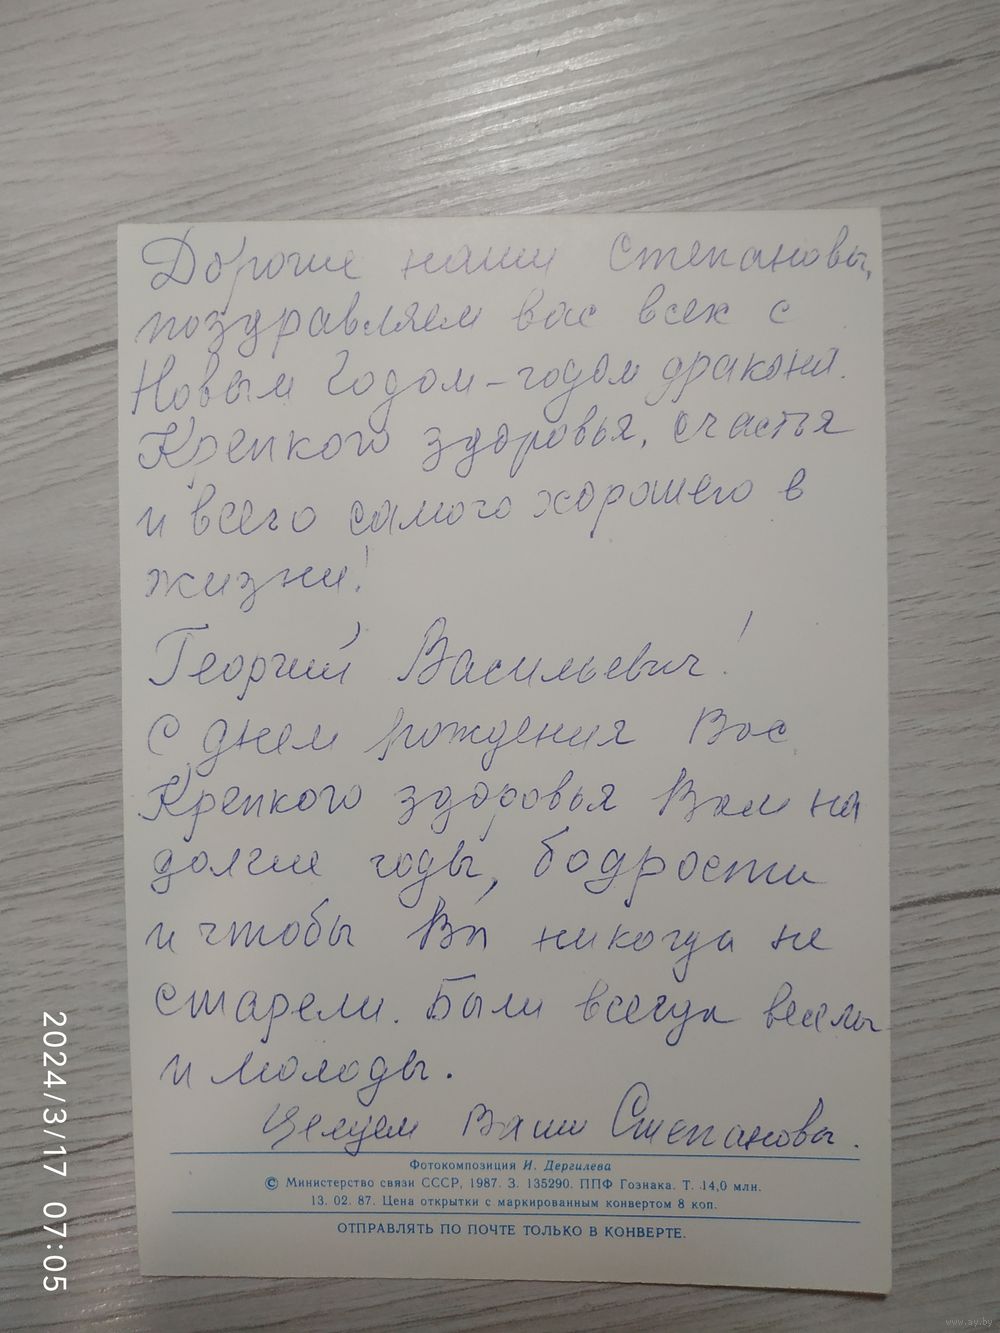 Дорогие наши Степановы,
поздравляем вас всех с
Новым Годом – годом дракона.
Крепкого здоровья, счастья
и всего самого хорошего в
жизни!
Георгий Васильевич!
С днем рождения Вас
Крепкого здоровья Вам на
долгие годы, бодрости
и чтобы Вы никогда не
старели. Были всегда веселы
и молоды.
Целуем Ваши Степановы.
Фотокомпозиция И. Дергилева
© Министерство связи СССР, 1987. З. 135290. ППФ Гознака. Т. 14,0 млн.
13. 02. 87. Цена открытки с маркированным конвертом 8 коп.
ОТПРАВЛЯТЬ ПО ПОЧТЕ ТОЛЬКО В КОНВЕРТЕ.
2024/3/17 07:05
www.ay.by